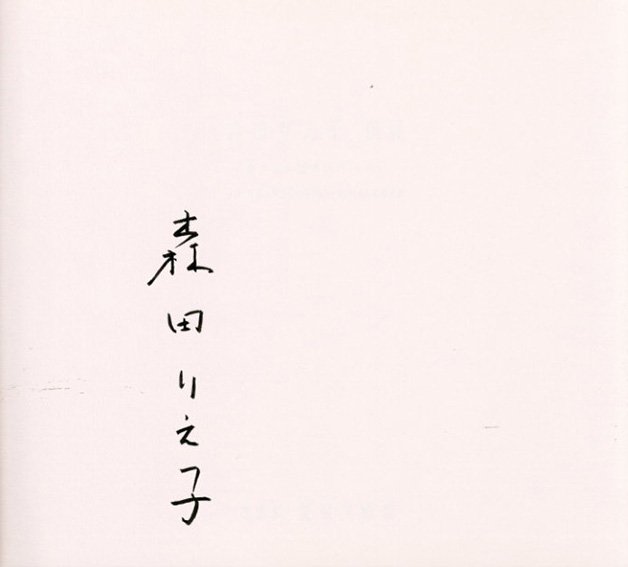 森田りえ子